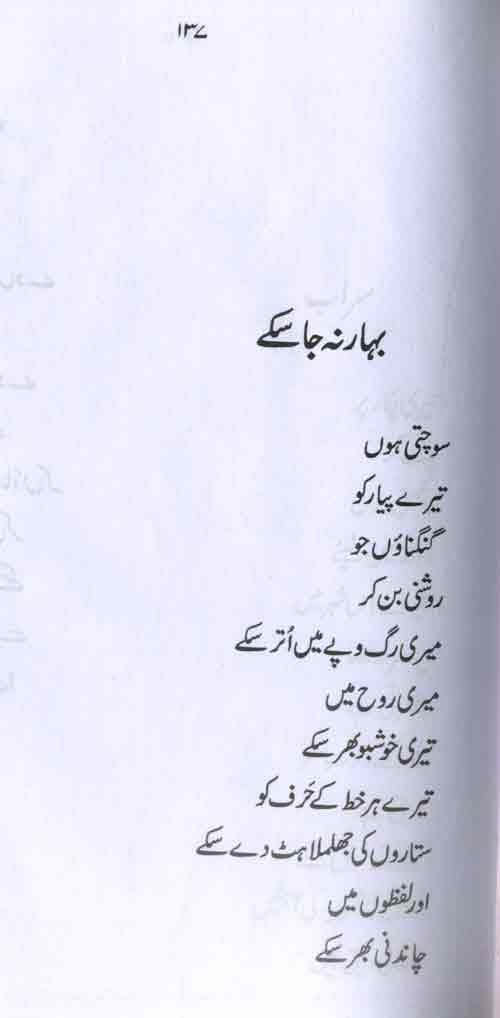 ۱۳۷
بہار نہ جا سکے
سوچتی ہوں
تیرے پیار کو
گنگناؤں جو
روشنی بن کر
میری رگ و پے میں اُتر سکے
میری روح میں
تیری خوشبو بھر سکے
تیرے ہر خط کے حَرف کو
ستاروں کی جھلملاہٹ دے سکے
اور لفظوں میں
چاندنی بھر سکے